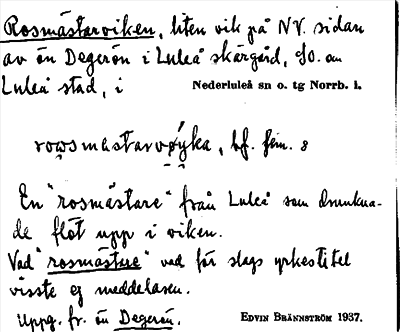 Rosmästarviken, liten vik på NV. sidan
av ön Degerön i Luleå skärgård, SO. om
Luleå stad, i Nederluleå sn o. tg Norrb. l.
rowsmastarvøyka, bf. fem. s
En "rosmästare" från Luleå som drunkna-
de flöt upp i viken.
Vad "rosmästare" vad för slags yrkestitel
visste ej meddelaren.
Uppg. fr. ön Degerön. EDVIN BRÄNNSTRÖM 1937.